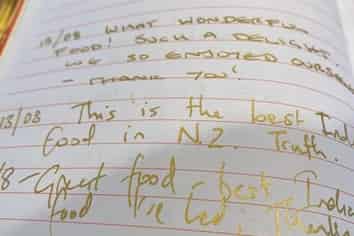 18/08 WHAT WONDERFUL
FOOD! SUCH A DELIGHT.
WE SO ENJOYED OURSE
- THANK YOU!
18/08 This is the best Indi
food in N.Z. Truth.
/8 - Great food, best India
food I've had. Thanks